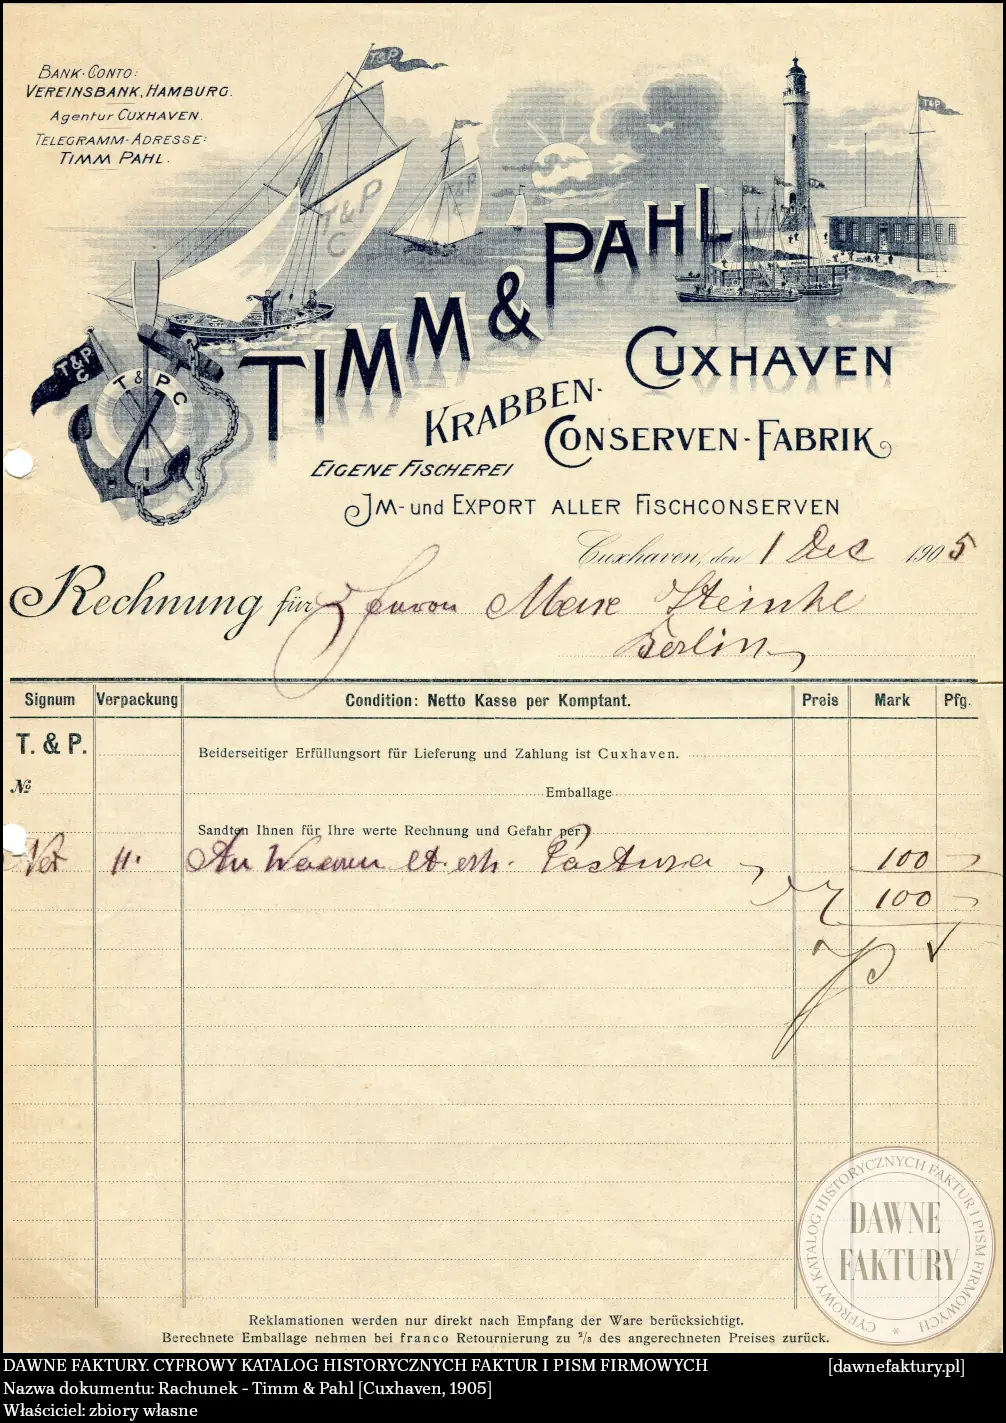 BANK-CONTO:
VEREINSBANK, HAMBURG.
Agentur CUXHAVEN.
TELEGRAMM-ADRESSE:
TIMM PAHL.
T&P
T&P
C
T&P
C
T&P
T&P
C
T & P C
TIMM & PAHL
CUXHAVEN
KRABBEN-
CONSERVEN-FABRIK
EIGENE FISCHEREI
IM- und EXPORT ALLER FISCHCONSERVEN
Cuxhaven, den 1 Dec 1905
Rechnung für Herren Max
Berlin
Signum Verpackung Condition: Netto Kasse per Komptant. Preis Mark Pfg.
T. & P. Beiderseitiger Erfüllungsort für Lieferung und Zahlung ist Cuxhaven.
№ Emballage
Sandten Ihnen für Ihre werte Rechnung und Gefahr per
An Waaren 100
100
Reklamationen werden nur direkt nach Empfang der Ware berücksichtigt.
Berechnete Emballage nehmen bei franco Retournierung zu 2/3 des angerechneten Preises zurück.
CYFROWY KATALOG HISTORYCZNYCH FAKTUR I PISM FIRMOWYCH
DAWNE
FAKTURY
CYFROWY KATALOG HISTORYCZNYCH
DAWNE FAKTURY. CYFROWY KATALOG HISTORYCZNYCH FAKTUR I PISM FIRMOWYCH [dawnefaktury.pl]
Nazwa dokumentu: Rachunek - Timm & Pahl [Cuxhaven, 1905]
Właściciel: zbiory własne